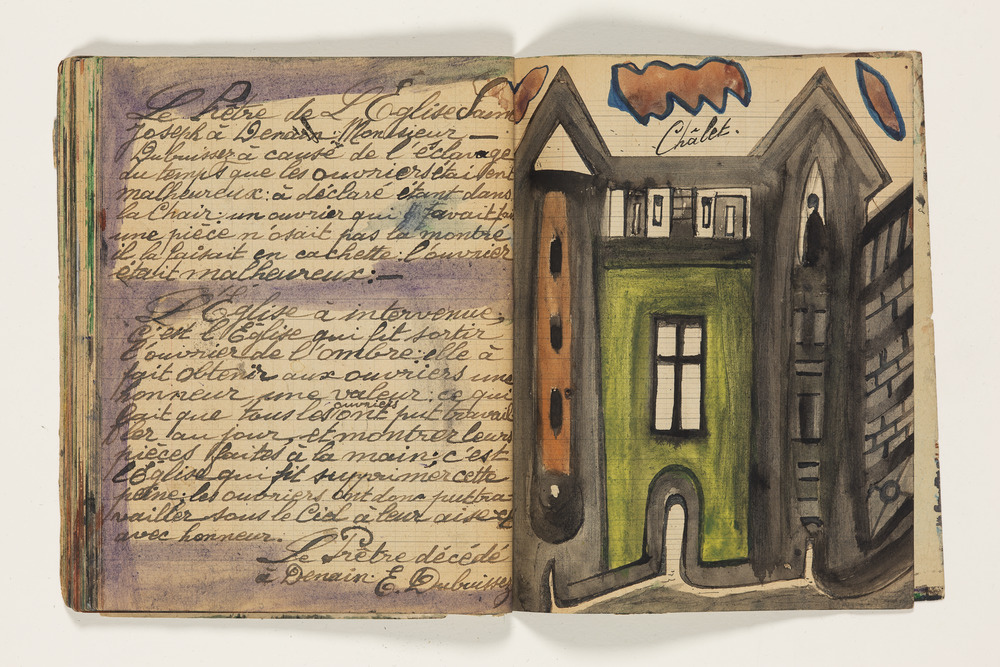 Le Prêtre de L'Église Saint
Joseph à Denain: Monsieur —
Dubuissez à cause de l'éclavage
du temps que les ouvriers étaient
malheureux: à déclaré étant dans
la Chair: un ouvrier qui travait
une pièce n'osait pas la montré
il la faisait en cachette: l'ouvrier
était malheureux: —
L'Église à intervenue,
C'est l'Église qui fit sortir
l'ouvrier de l'ombre: elle à
fait obtenir aux ouvriers une
honneur une valeur: ce qui
fait que tous les ouvriers ont put travail
ler au jour, et montrer leurs
pièces faites à la main: c'est
l'Église qui fit supprimer cette
peine; les ouvriers ont donc put tra-
vailler sous le Ciel à leur aise et
avec honneur.
Le Prêtre décédé
à Denain E. Dubuissez
Châlet.